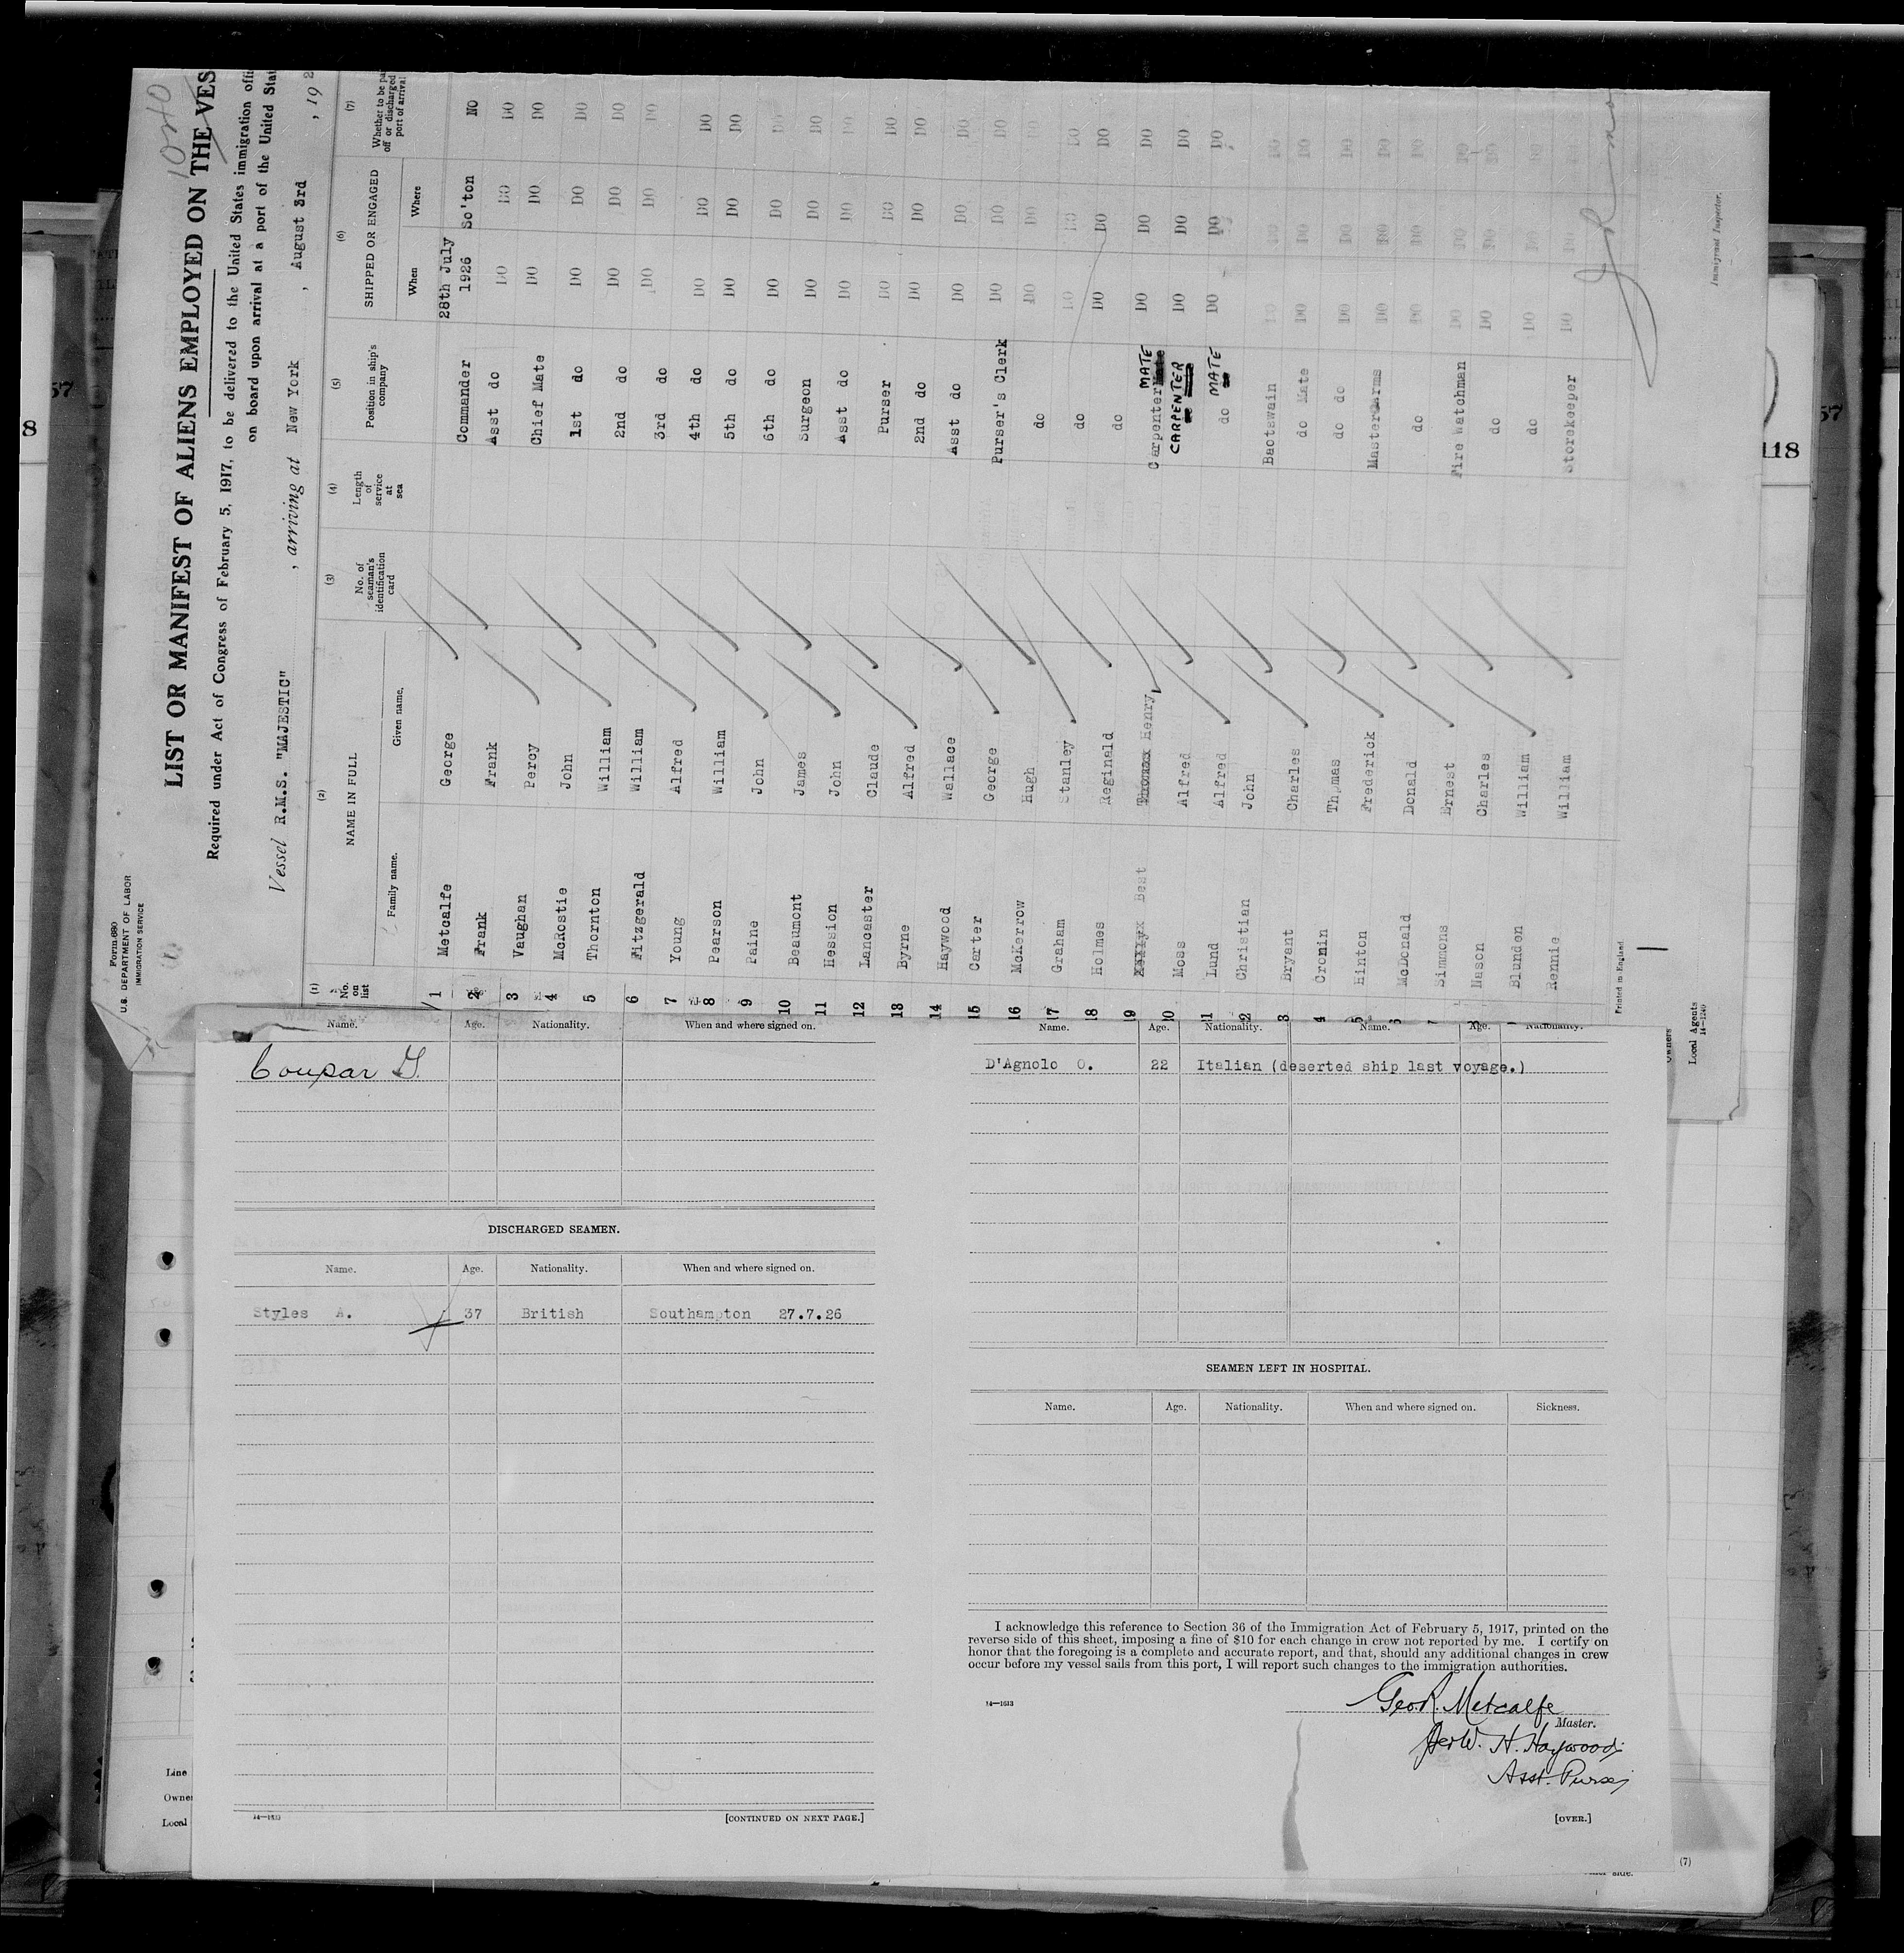 Form 680
U.S. DEPARTMENT OF LABOR
IMMIGRATION SERVICE
LIST OR MANIFEST OF ALIENS EMPLOYED ON THE VES
Required under Act of Congress of February 5, 1917, to be delivered to the United States immigration offi
on board upon arrival at a port of the United Stat
Vessel R.M.S. "MAJESTIC" , arriving at New York , August 3rd , 192
(1) (2) (3) (4) (5) (6) (7)
No. on list NAME IN FULL No. of seaman's identification card Length of service at sea Position in ship's company SHIPPED OR ENGAGED Whether to be pai off or discharged port of arrival
Family name. Given name. When Where
1 Metcalfe George Commander 28th July 1926 So'ton NO
2 Frank Frank Asst do DO DO DO
3 Vaughan Percy Chief Mate DO DO DO
4 McRostie John 1st do DO DO DO
5 Thornton William 2nd do DO DO DO
6 Fitzgerald William 3rd do DO DO DO
7 Young Alfred 4th do DO DO DO
8 Pearson William 5th do DO DO DO
9 Paine John 6th do DO DO DO
10 Beaumont James Surgeon DO DO DO
11 Hession John Asst do DO DO DO
12 Lancaster Claude Purser DO DO DO
13 Byrne Alfred 2nd do DO DO DO
14 Haywood Wallace Asst do DO DO DO
15 Carter George Purser's Clerk DO DO DO
16 McKerrow Hugh do DO DO DO
17 Graham Stanley do DO DO DO
18 Holmes Reginald do DO DO DO
19 Best Thomas Henry Carpenter MATE DO DO DO
20 Moss Alfred CARPENTER DO DO DO
21 Lund Alfred do MATE DO DO DO
2 Christian John Baotswain DO DO DO
3 Bryant Charles do Mate DO DO DO
4 Cronin Thpmas do do DO DO DO
5 Hinton Frederick Master Arms DO DO DO
6 McDonald Donald do DO DO DO
7 Simmons Ernest Fire Watchman DO DO DO
8 Mason Charles do DO DO DO
Blunden William do DO DO DO
Rennie William Storekeeper DO DO DO
Immigrant Inspector.
Printed in England
Owners
Local Agents
14-1240
57
8
57
118
Name. Age. Nationality. When and where signed on.
Coupar G.
DISCHARGED SEAMEN.
Name. Age. Nationality. When and where signed on.
Styles A. 37 British Southampton 27.7.26
14-1613
[CONTINUED ON NEXT PAGE.]
Name. Age. Nationality. Name. Age. Nationality.
D'Agnolo O. 22 Italian (deserted ship last voyage.)
SEAMEN LEFT IN HOSPITAL.
Name. Age. Nationality. When and where signed on. Sickness.
I acknowledge this reference to Section 36 of the Immigration Act of February 5, 1917, printed on the
reverse side of this sheet, imposing a fine of $10 for each change in crew not reported by me. I certify on
honor that the foregoing is a complete and accurate report, and that, should any additional changes in crew
occur before my vessel sails from this port, I will report such changes to the immigration authorities.
14-1613
Geo. R. Metcalfe
Master.
Per W. H. Haywood
Asst. Purser
[OVER.]
Line
Owne
Local
side.
(7)